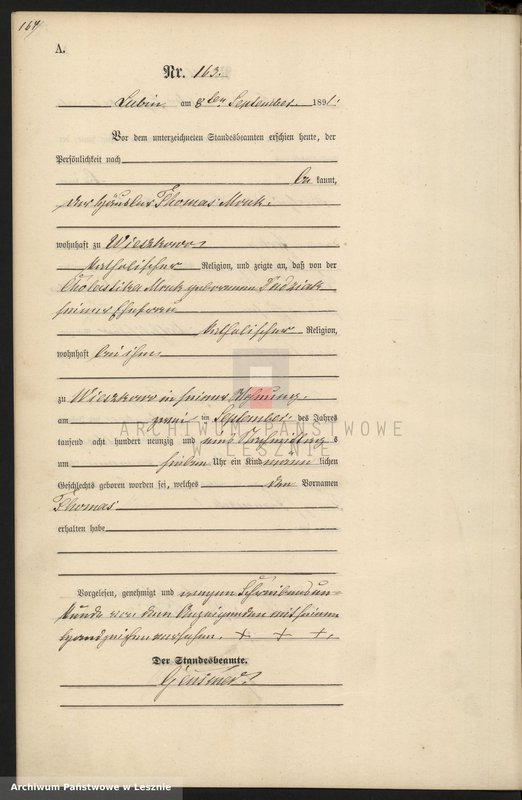 164
A.
Nr. 163.
Lubin am 8ten September 1891.
Vor dem unterzeichneten Standesbeamten erschien heute, der
Persönlichkeit nach
be kannt,
der Häusler Thomas Monk.
wohnhaft zu Wieszkowo
katholischer Religion, und zeigte an, daß von der
Scholastika Monk geborenen Dudziak
seiner Ehefrau
katholischer Religion,
wohnhaft bei ihm
zu Wieszkowo in seiner Wohnung,
am zwei im September des Jahres
tausend acht hundert neunzig und eins Vormittag s
um sieben Uhr ein Kind männ lichen
Geschlechts geboren worden sei, welches den Vornamen
Thomas
erhalten habe
Vorgelesen, genehmigt und wegen Schreibensun-
kunde von dem Anzeigenden mit seinem
Handzeichen versehen. + + +.
Der Standesbeamte.
ARCHIWUM PAŃSTWOWE
W LESZNIE
Archiwum Państwowe w Lesznie